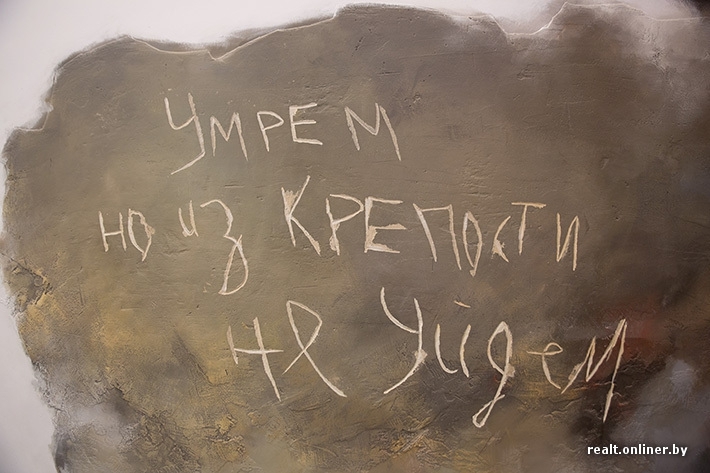 Умрем
но из Крепости
не уйдем
realt.onliner.by